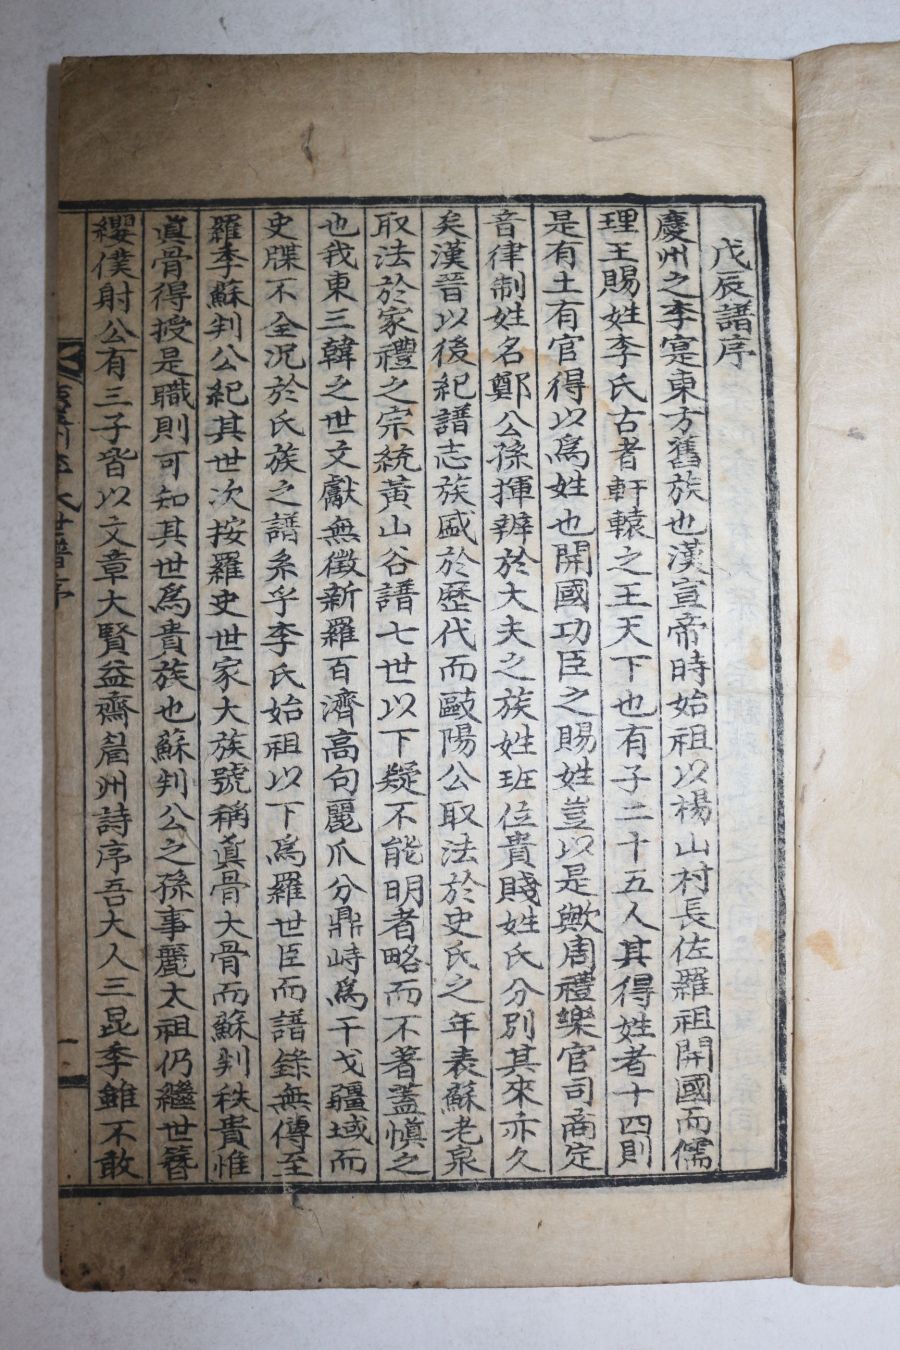 戊辰譜序
慶州之李寔東方舊族也漢宣帝時始祖以楊山村長佐羅祖開國而儒
理王賜姓李氏古者軒轅之王天下也有子二十五人其得姓者十四則
是有土有官得以爲姓也開國功臣之賜姓豈以是歟周禮樂官司商定
音律制姓名鄭公孫揮辨於大夫之族姓班位貴賤姓氏分別其來亦久
矣漢晉以後紀譜志族盛於歷代而歐陽公取法於史氏之年表蘇老泉
取法於家禮之宗統黃山谷譜七世以下疑不能明者略而不著蓋愼之
也我東三韓之世文獻無徵新羅百濟高句麗爪分鼎峙爲干戈疆域而
史牒不全況於氏族之譜系乎李氏始祖以下爲羅世臣而譜錄無傳至
羅季蘇判公紀其世次按羅史世家大族號稱眞骨大骨而蘇判秩貴惟
眞骨得授是職則可知其世爲貴族也蘇判公之孫事麗太祖仍繼世簪
纓僕射公有三子皆以文章大賢益齋眉州詩序吾大人三昆季雖不敢
慶州李氏世譜序
一